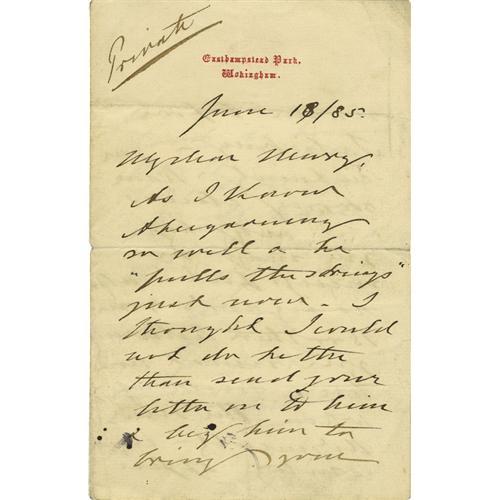 Private
Easthampstead Park,
Wokingham.
June 18/85.
My dear Henry,
As I know
so well & he
"pulls the strings"
just now - I
thought I could
not do better
than send your
letter on to him
& beg him to
bring your